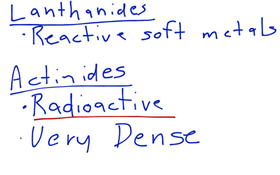 Lanthanides
· Reactive soft metals
Actinides
· Radioactive
· Very Dense